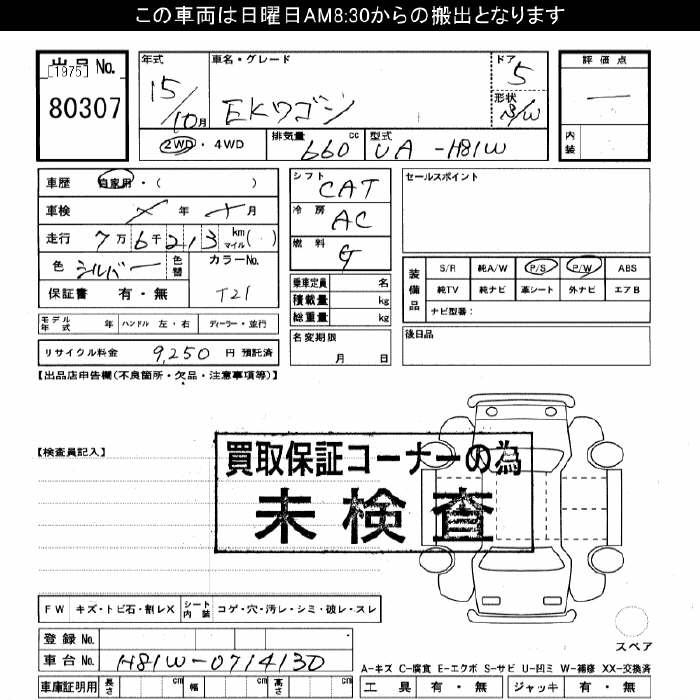 この車両は日曜日AM8:30からの搬出となります
出品 No.
[1975]
80307
年式
15/10月
車名・グレード
EKワゴン
ドア 5
形状 S/W
評価点
—
内装
2WD・4WD
排気量 660 cc
型式 UA-H81W
車歴 自家用・( )
車検 年 月
走行 7万6千213 km マイル( )
色 シルバー 色替
カラーNo. T21
保証書 有・無
シフト CAT
冷房 AC
燃料 G
乗車定員 名
積載量 kg
総重量 kg
名変期限
月 日
セールスポイント
装備品
S/R 純A/W P/S P/W ABS
純TV 純ナビ 革シート 外ナビ エアB
ナビ型番:
後日品
モデル年式 年 ハンドル 左・右 ディーラー・並行
リサイクル料金 9,250 円 預託済
【出品店申告欄(不良箇所・欠品・注意事項等)】
【検査員記入】
買取保証コーナーの為
未検査
FW キズ・トビ石・割レX シート内装 コゲ・穴・汚レ・シミ・破レ・スレ
スペア
登録 No.
車台 No. H81W-0714130
A-キズ C-腐食 E-エクボ S-サビ U-凹ミ W-補修 XX-交換済
車庫証明用 長さ cm 幅 cm 高さ cm
工具 有・無 ジャッキ 有・無